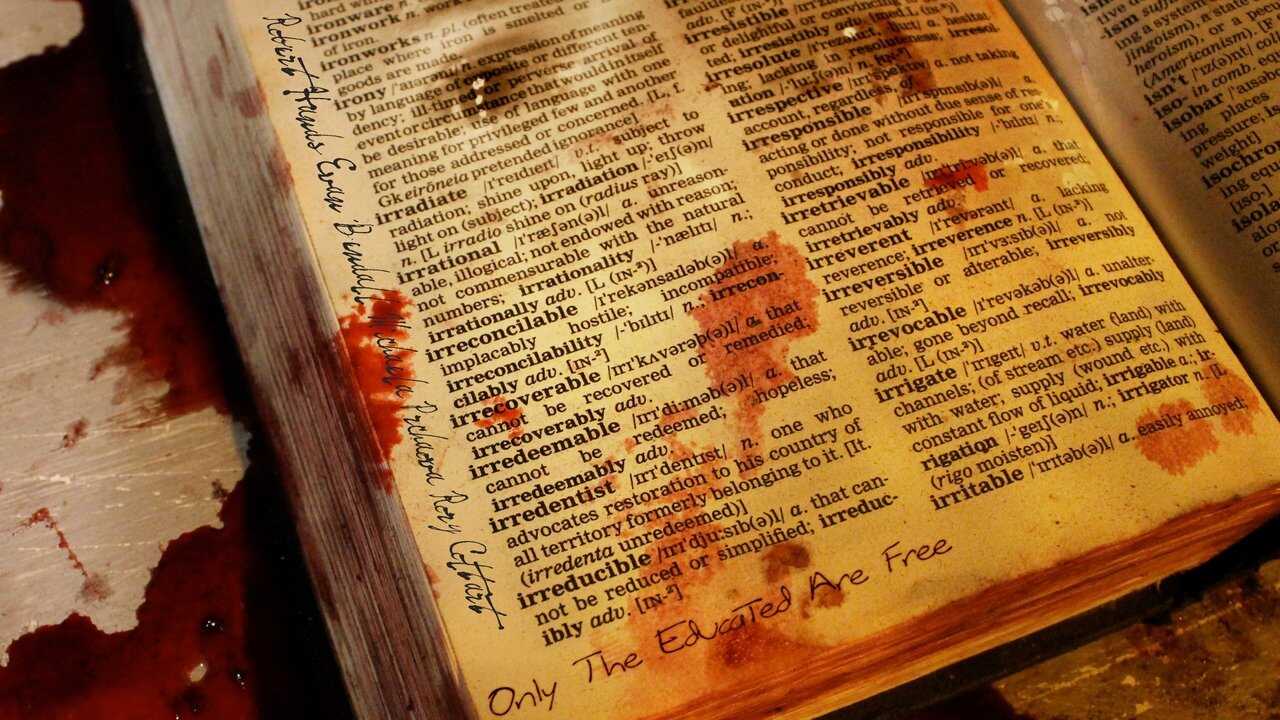 ironware n.
ironworks n. pl. (often treated
place where iron is smelted or
of iron.
irony n. expression of meaning
by language of opposite or different ten
dency;
for those addressed or concerned. [L. f.
Gk eirōneia pretended ignorance]
irradiate /ɪ'reɪdɪeɪt/ v.t. subject to
radiation; shine upon, light up; throw
light on (subject); irradiation /-'eɪʃ(ə)n/
n. [L irradio shine on (radius ray)]
irrational /ɪ'ræʃən(ə)l/ a. unreason-
able, illogical; not endowed with reason;
not commensurable with the natural
numbers; irrationality /-'nælɪtɪ/ n.;
irrationally adv. [L (IN-²)]
irreconcilable /ɪ'rekənsaɪləb(ə)l/ a.
implacably hostile; incompatible;
irreconcilability /-'bɪlɪtɪ/ n.; irrecon-
cilably adv. [IN-²]
irrecoverable /ɪrɪ'kʌvərəb(ə)l/ a. that
cannot be recovered or remedied;
irrecoverably adv.
irredeemable /ɪrɪ'di:məb(ə)l/ a. that
cannot be redeemed; hopeless;
irredeemably adv.
irredentist /ɪrɪ'dentɪst/ n. one who
advocates restoration to his country of
all territory formerly belonging to it. [It.
(irredenta unredeemed)]
irreducible /ɪrɪ'dju:sɪb(ə)l/ a. that can-
not be reduced or simplified; irreduc-
ibly adv. [IN-²]
irresistible
adv.
or delightful or convincing
irresolute a. hesitat
ing, lacking in resoluteness;
irrespective a. not taking
account, regardless, of
irresponsible a.
acting or done without due sense of res
ponsibility; not responsible for one's
conduct; irresponsibility /-'bɪlɪtɪ/ n.;
irresponsibly adv.
irretrievable a. that
cannot be retrieved or recovered;
irretrievably adv.
irreverent /ɪ'revərənt/ a. lacking
reverence; irreverence n. [L (IN-²)]
irreversible /ɪrɪ'vɜ:sɪb(ə)l/ a. not
reversible or alterable; irreversibly
adv. [IN-²]
irrevocable /ɪ'revəkəb(ə)l/ a. unalter-
able; gone beyond recall; irrevocably
adv. [L (IN-²)]
irrigate /'ɪrɪgeɪt/ v.t. water (land) with
channels; (of stream etc.) supply (land)
with water; supply (wound etc.) with
constant flow of liquid; irrigable a.; ir-
rigation /-'geɪʃ(ə)n/ n.; irrigator n. [L
(rigo moisten)]
irritable /'ɪrɪtəb(ə)l/ a. easily annoyed;
ism
ing a system
jingoism), a
(Americanism).
isn't
iso- in comb.
isobar
ing places
pressure,
weight]
isochron
ing equ
[ISO-]
isola
Only The Educated Are Free